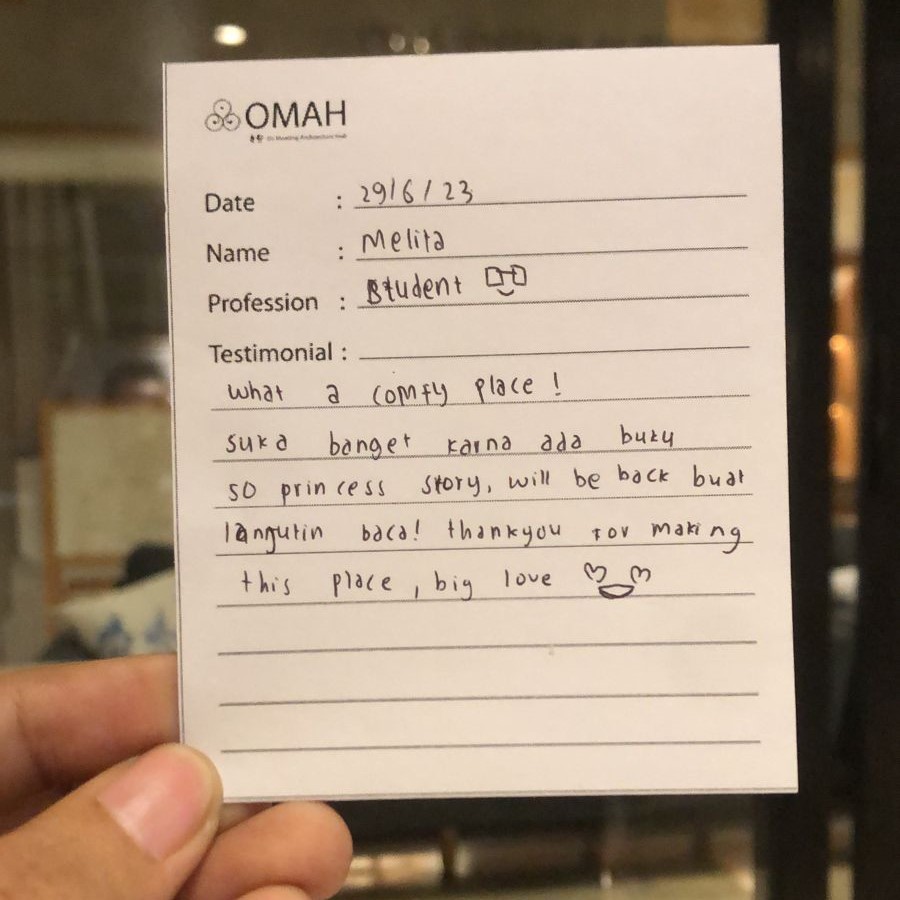 OMAH
Date : 29/6/23
Name : Melita
Profession : Student
Testimonial :
What a comfy place!
suka banget karna ada buku
so princess story, will be back buat
langutin baca! thankyou for making
this place, big love